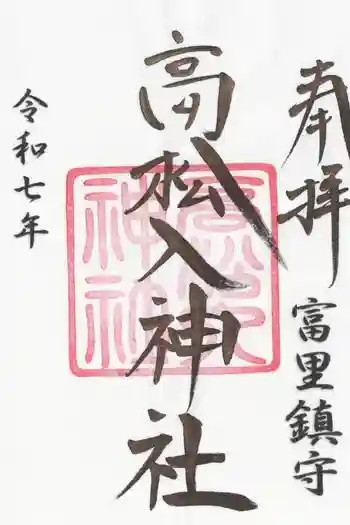 奉拝
富里鎮守
高松入神社
高松入神社
令和七年